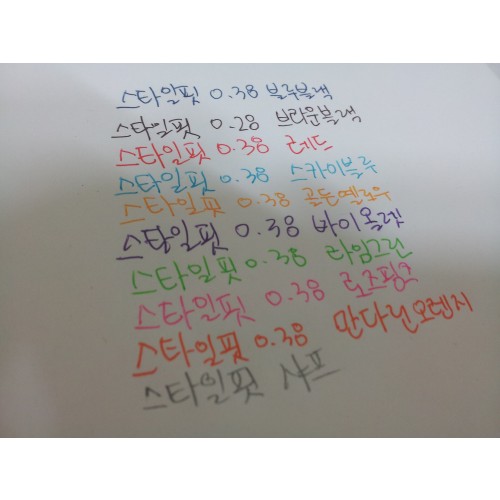 스타일핏 0.38 블루블랙
스타일핏 0.28 브라운블랙
스타일핏 0.38 레드
스타일핏 0.38 스카이블루
스타일핏 0.38 골든옐로우
스타일핏 0.38 바이올렛
스타일핏 0.38 라임그린
스타일핏 0.38 로즈핑크
스타일핏 0.38 만다린오렌지
스타일핏 샤프